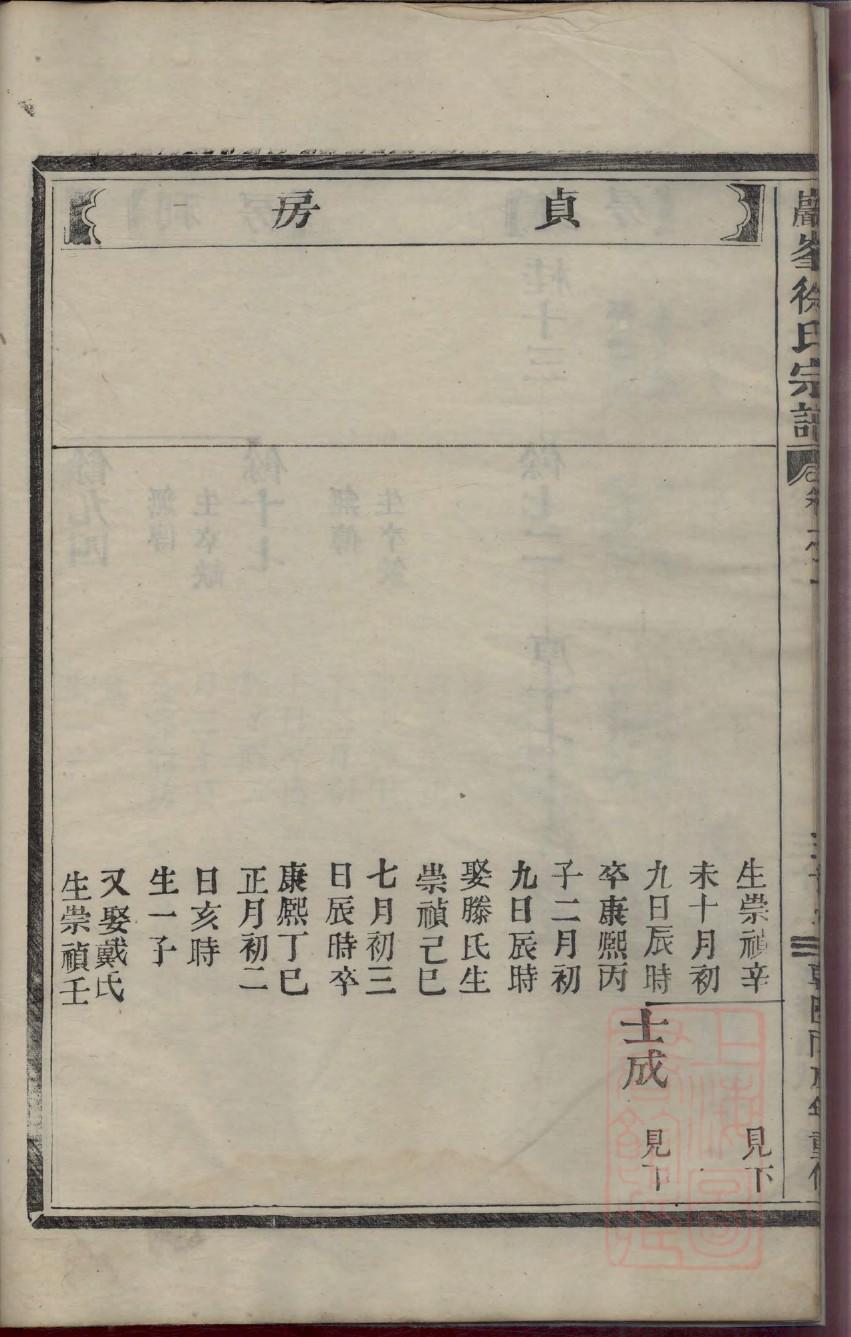 巖峯徐氏宗譜
貞房
生崇禎辛
未十月初
九日辰時
卒康熙丙
子二月初
九日辰時
娶滕氏生
崇禎己巳
七月初三
日辰時卒
康熙丁巳
正月初二
日亥時
生一子
又娶戴氏
生崇禎壬
見下
士成
見下